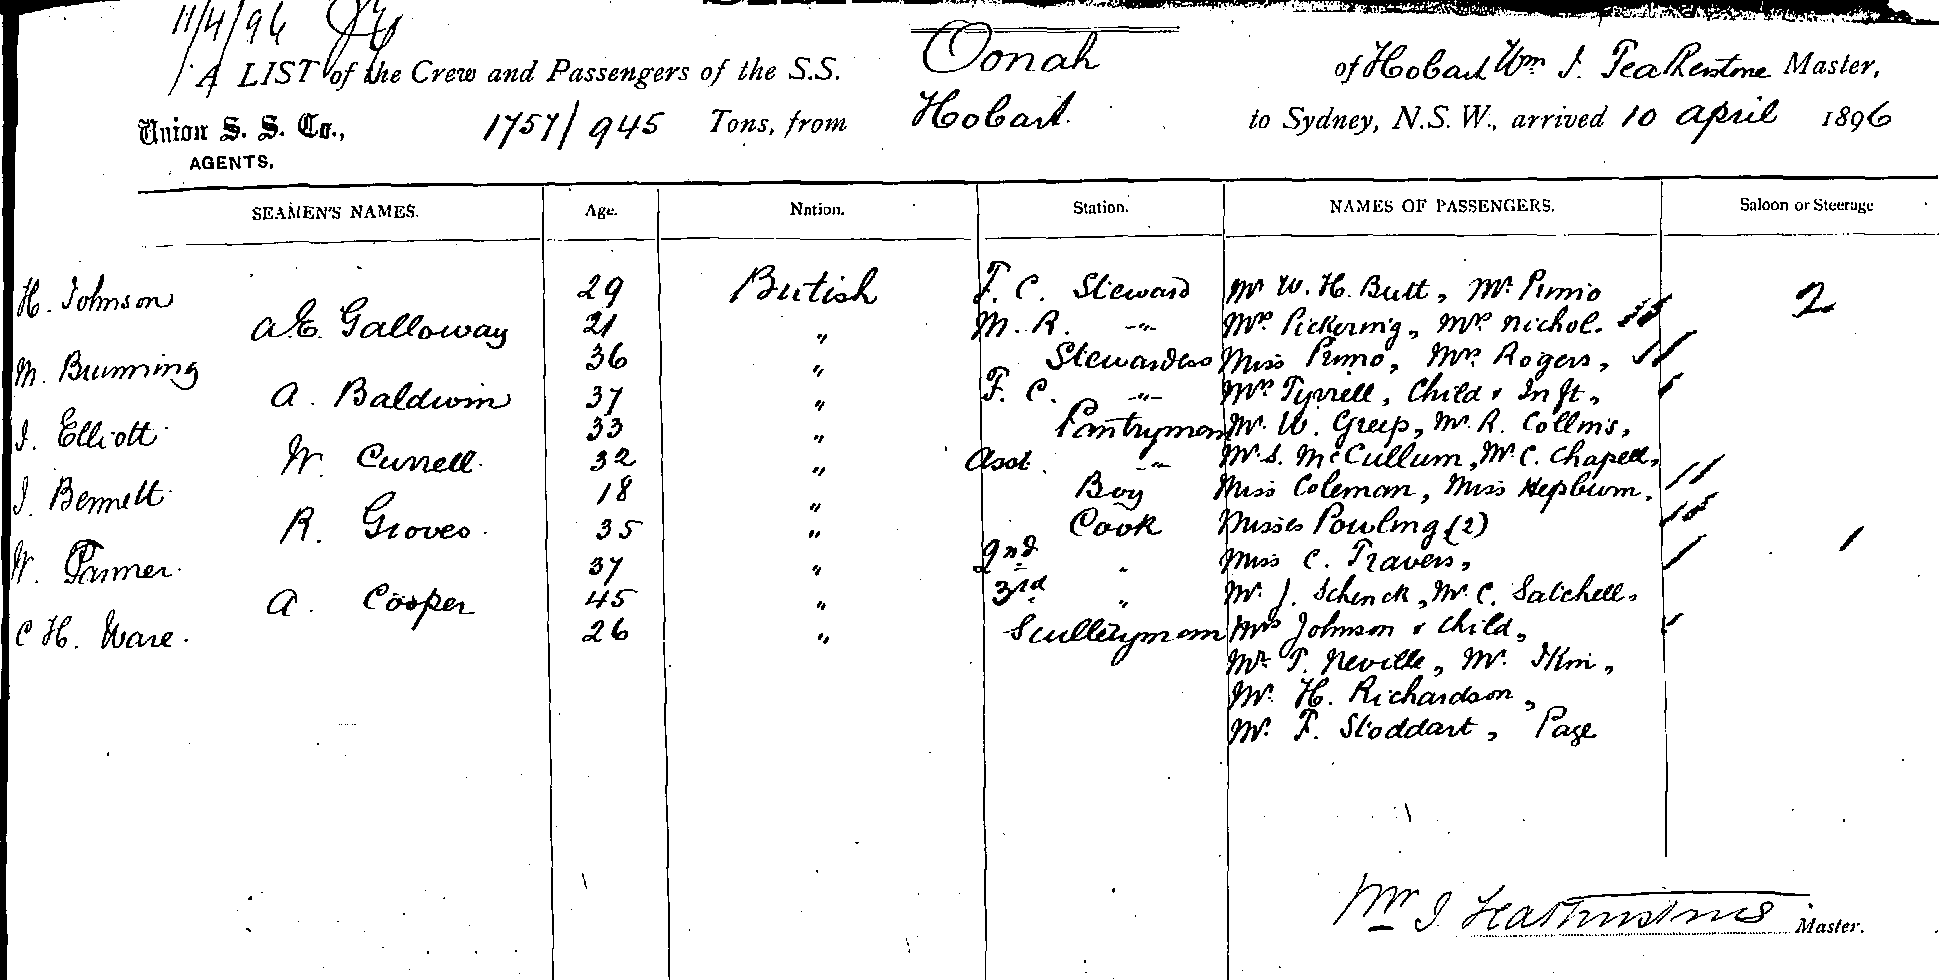 11/4/96
A LIST of the Crew and Passengers of the S.S. Oonah of Hobart Wm J. Featherstone Master,
Union S. S. Co., 1757/945 Tons, from Hobart. to Sydney, N.S.W., arrived 10 April 1896
AGENTS.
SEAMEN'S NAMES. Age. Nation. Station. NAMES OF PASSENGERS. Saloon or Steerage
H. Johnson 29 British F. C. Steward Mr W. H. Butt, Mr. Primo 2
A.E. Galloway 21 " M. R. -"- Mrs Pickering, Mrs Nichol.
M. Brunning 36 " Stewardess Miss Primo, Mrs Rogers,
A. Baldwin 37 " F. C. -"- Mrs Tyrrell, Child & Inft,
J. Elliott 33 " Pantryman Mr. W. Greep, Mr. R. Collins,
W. Currell 32 " Asst. -"- Mr S. McCullum, Mr C. Chapell,
J. Bennett 18 " Boy Miss Coleman, Miss Hepburn,
R. Groves 35 " Cook Misses Powling (2)
W. Farmer 37 " 2nd " Miss C. Travers, 1
A. Cooper 45 " 3rd " Mr. J. Schenck, Mr C. Satchell,
C H. Ware. 26 " Sculleryman Mrs Johnson & Child,
Mr T. Neville, Mr. Ikin,
Mr. H. Richardson,
Mr. F. Stoddart, Page
Wm J Featherstone Master.